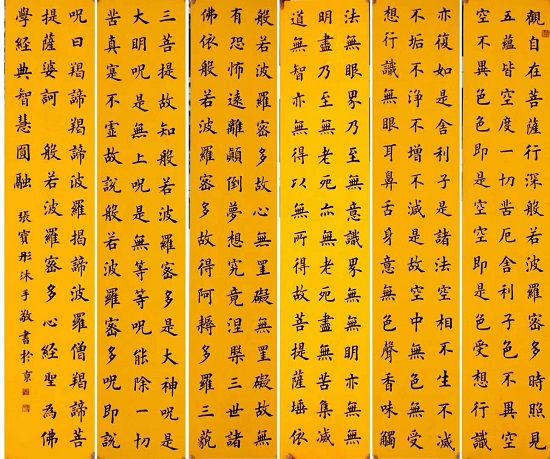 觀自在菩薩行深般若波羅蜜多時照見
五蘊皆空度一切苦厄舍利子色不異空
空不異色色即是空空即是色受想行識
亦復如是舍利子是諸法空相不生不滅
不垢不淨不增不減是故空中無色無受
想行識無眼耳鼻舌身意無色聲香味觸
法無眼界乃至無意識界無無明亦無無
明盡乃至無老死亦無老死盡無苦集滅
道無智亦無得以無所得故菩提薩埵依
般若波羅蜜多故心無罣礙無罣礙故無
有恐怖遠離顛倒夢想究竟涅槃三世諸
佛依般若波羅蜜多故得阿耨多羅三藐
三菩提故知般若波羅蜜多是大神呪是
大明呪是無上呪是無等等呪能除一切
苦真寔不虛故說般若波羅蜜多呪即說
呪曰羯諦羯諦波羅揭諦波羅僧羯諦菩
提薩婆訶 般若波羅蜜多心經聖為佛
學經典智慧圓融 張寶彤沐手敬書於京